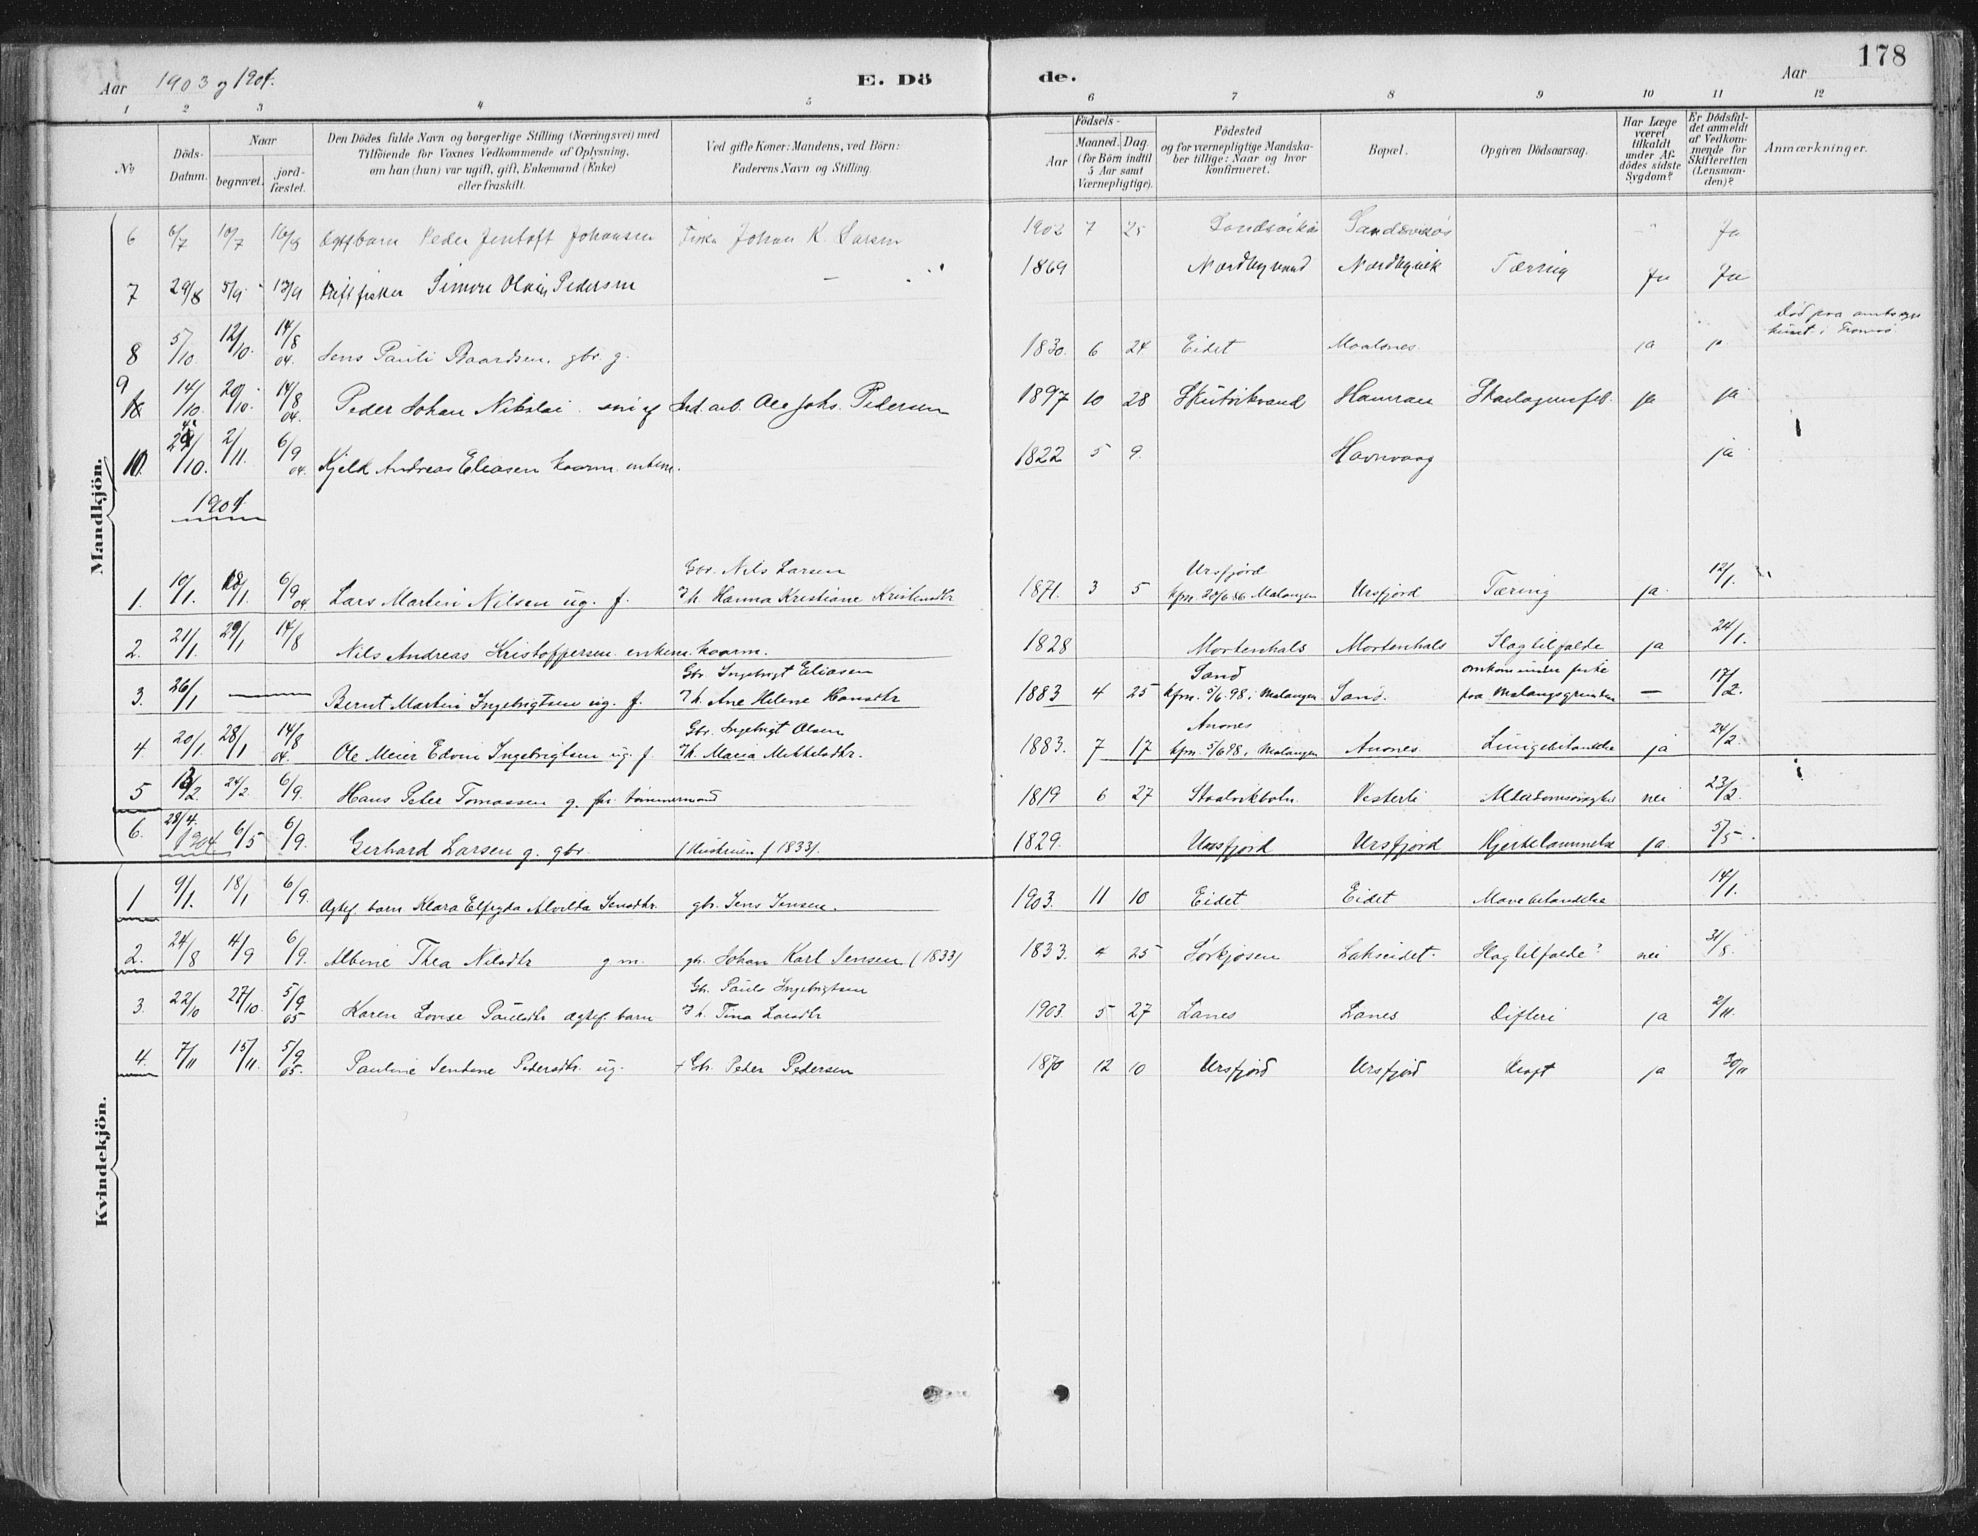 178
Aar 1903 og 1904. E. Dö de. Aar
1 2 3 4 5 6 7 8 9 10 11 12
No
Döds-Datum.
Naar begravet. jordfæstet.
Den Dödes fulde Navn og borgerlige Stilling (Næringsvei) med
Tilföiende for Voxnes Vedkommende af Oplysning,
om han (hun) var ugift, gift, Enkemand (Enke)
eller fraskilt.
Ved gifte Koner: Mandens, ved Börn:
Faderens Navn og Stilling.
Födsels-
Aar
Maaned. Dag.
(for Börn indtil
5 Aar samt
Værnepligtige).
Födested
og for værnepligtige Mandska-
ber tillige: Naar og hvor
konfirmeret.
Bopæl.
Opgiven Dödsaarsag.
Har Læge
været
tilkaldt
under Af-
dödes sidste
Sygdom?
Er Dödsfal-
det anmeldt
af Vedkom-
mende for
Skifteretten
(Lensman-
den)?
Anmærkninger.
Mandkjön.
6 6/7 10/7 16/8 barn Peder Jentoft Johansen Johan K. Larsen 1902 7 25 Ja
7 29/8 5/9 13/9 fisker Pedersen 1869 Tæring Ja Ja
Död paa amtssyge
huset i Tromsö
8 5/10 12/10. 14/8 04. Jens Pauli Baardsen. gbr. g. 1830. 6 24 Eidet Maalsnes. ja
9 14/10. 20/10. 14/8 04. Peder Johan Nikolai. sön af Ind. arb. Ole Johs. Pedersen 1897 10 28 Skutvikvand ja ja
10. 29/10. 2/11. 6/9 04. Kjeld Andreas Eliasen kaarm. enkem. 1822 5 9. Havnvaag ja
1904
Gbr. Nils Larsen Ursfjord 12/1.
1. 10/1. 18/1. 6/9 04. Lars Martin Nilsen ug. f. Th. Hanna Kristiane 1871. 3 5 kfm. 20/6 86 Malangen Ursfjord Tæring ja.
2. 21/1. 29/1 14/8 Nils Andreas Kristoffersen enkem. kaarm. 1828 Mortenhals Mortenhals Slagtilfælde ja 24/1.
Gbr. Ingebrigt Eliasen Sand omkom under fiske
3. 26/1 Bernt Martin Ingebrigtsen ug. f. Th. Ane Helene Hansdtr 1883 4 25 kfm. 5/6 98 i Malangen Sand. paa Malangsgrunden — 17/2.
Gbr. Ingebrigt Olsen Ansnes
4 20/1 28/1 14/8 04. Ole Meier Edvin Ingebrigtsen ug. f. Th. Maria Mikkelsdtr. 1883. 7 17 kfm. 5/6 98 i Malangen Ansnes Lungebetændelse ja 24/2.
5 13/2 24/2. 6/9. Hans Peter Tomassen g. fhv. tømmermand 1819 6 27 Vesterli Alderdomssvaghed nei 23/2.
6. 28/4. 1904. 6/5 6/9. Gerhard Larsen g. gbr. (Hustruen f 1833). 1829. Ursfjord Ursfjord Hjertelammelse ja 5/5.
Kvindekjön.
1 9/1. 18/1 6/9. Ægtef. barn Klara Elfryda Alvilda Jensdtr. gbr. Jens Jensen. 1903. 11 10 Eidet Eidet Mavebetændelse 14/1.
2. 24/8 4/9 6/9. Albine Thea Nilsdtr g m. gb. Johan Karl Jensen (1833) 1833. 4 25 Sørkjosen Lakseidet. Slagtilfælde? nei 31/8.
Gb. Pauls Ingebrigtsen
3. 22/10 27/10. 5/9 05 Karen Lovise Paulsdtr ægtef. barn Th. Tina Larsdtr 1903. 5 27 Lanes Lanes Difteri ja 2/11.
4. 7/11 15/11. 5/9 05. Pauline Pedersdtr. ug. Gbr. Peder Pedersen 1870 12 10 Ursfjord Ursfjord ja 30/11